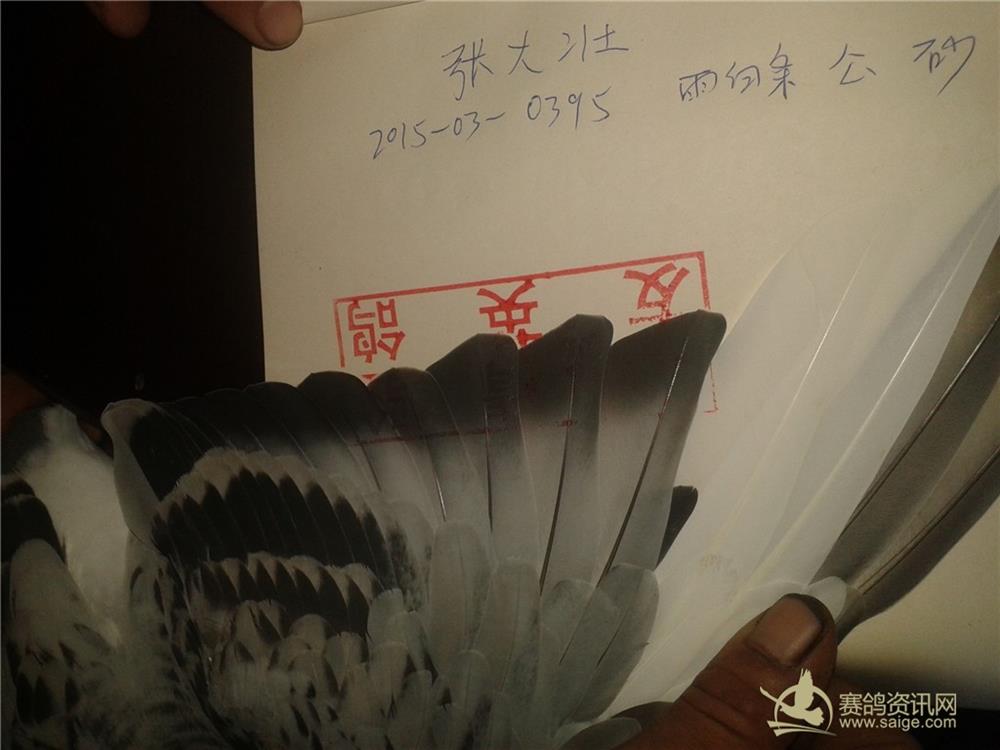 张大壮
2015-03-0395 雨白条 公 砂
鸽 英 友
赛鸽资讯网
www.saige.com